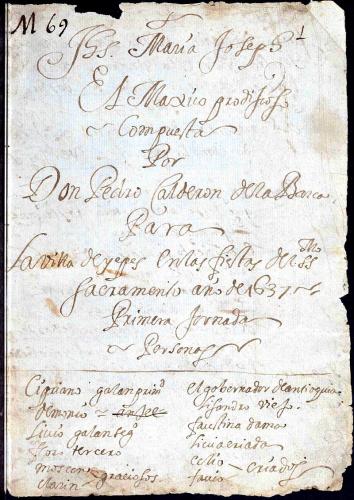 M 69
Jhs. Maria Joseph 1
El Maxico prodijioso
Compuesta
Por
Don Pedro Calderon de la Barca
Para
La villa de yepes en las fiestas del SSmo
sacramento año de 1637
Primera Jornada
Personas
Cipriano galan primo
Demonio
Livio galan segdo
floro tercero
moscon graciosos
clarin
el gobernador de antioquia
lisandro viejo
faustina dama
livia criada
celio criados
favio